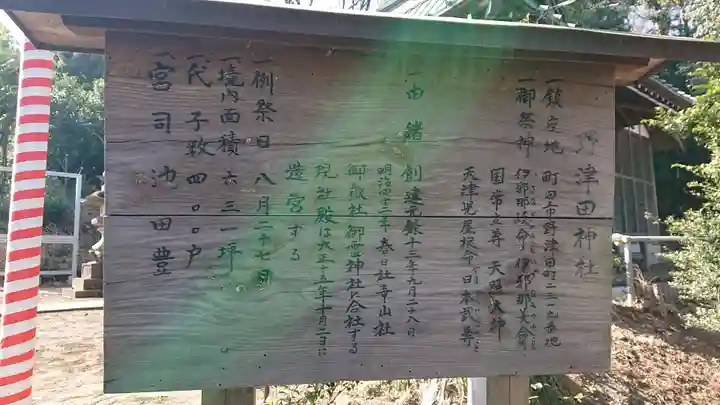 野津田神社
一鎮座地 町田市野津田町二三一九番地
一御祭神 伊邪那岐命 伊邪那美命
国常立尊 天照大神
天津児屋根命 日本武尊
一由緒 創建元禄十三年九月二十八日
明治四十二年 春日社 寺山社
御嶽社 御霊神社に合社する
現社殿は大正十五年十月二日に
造営する
一例祭日 八月二十七日
一境内面積 六三一坪
一氏子数 四〇〇戸
一宮司 池田豊